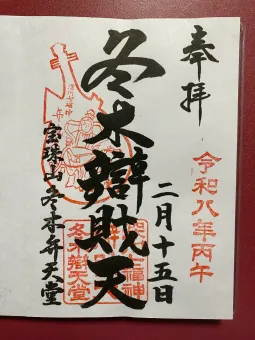 奉拝
令和八年丙午
二月十五日
冬木辯財天
深川七福神
冬木辯天堂
宝珠山冬木弁天堂